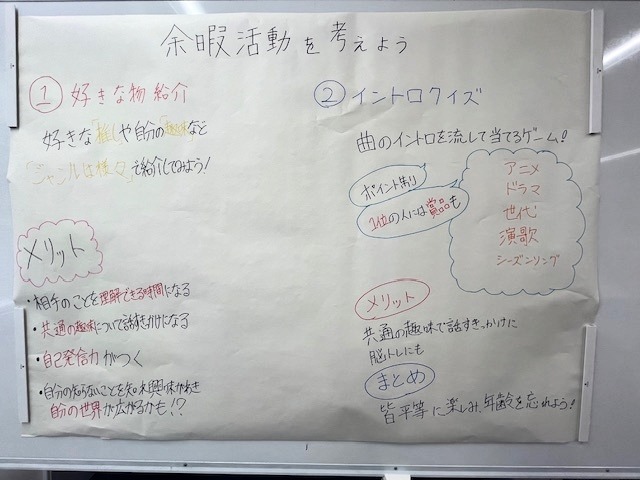 余暇活動を考えよう
① 好きな物紹介
好きな「推し」や自分の「趣味」など
「ジャンルは様々」で紹介してみよう!
メリット
・相手のことを理解できる時間になる
・共通の趣味について話すきっかけになる
・自己発信力がつく
・自分の知らないことを知れ興味がわき
自分の世界が広がるかも!?
② イントロクイズ
曲のイントロを流して当てるゲーム!
ポイント制
1位の人には賞品も
アニメ
ドラマ
世代
演歌
シーズンソング
メリット
共通の趣味で話すきっかけに
脳トレにも
まとめ
皆平等に楽しみ、年齢を忘れよう!